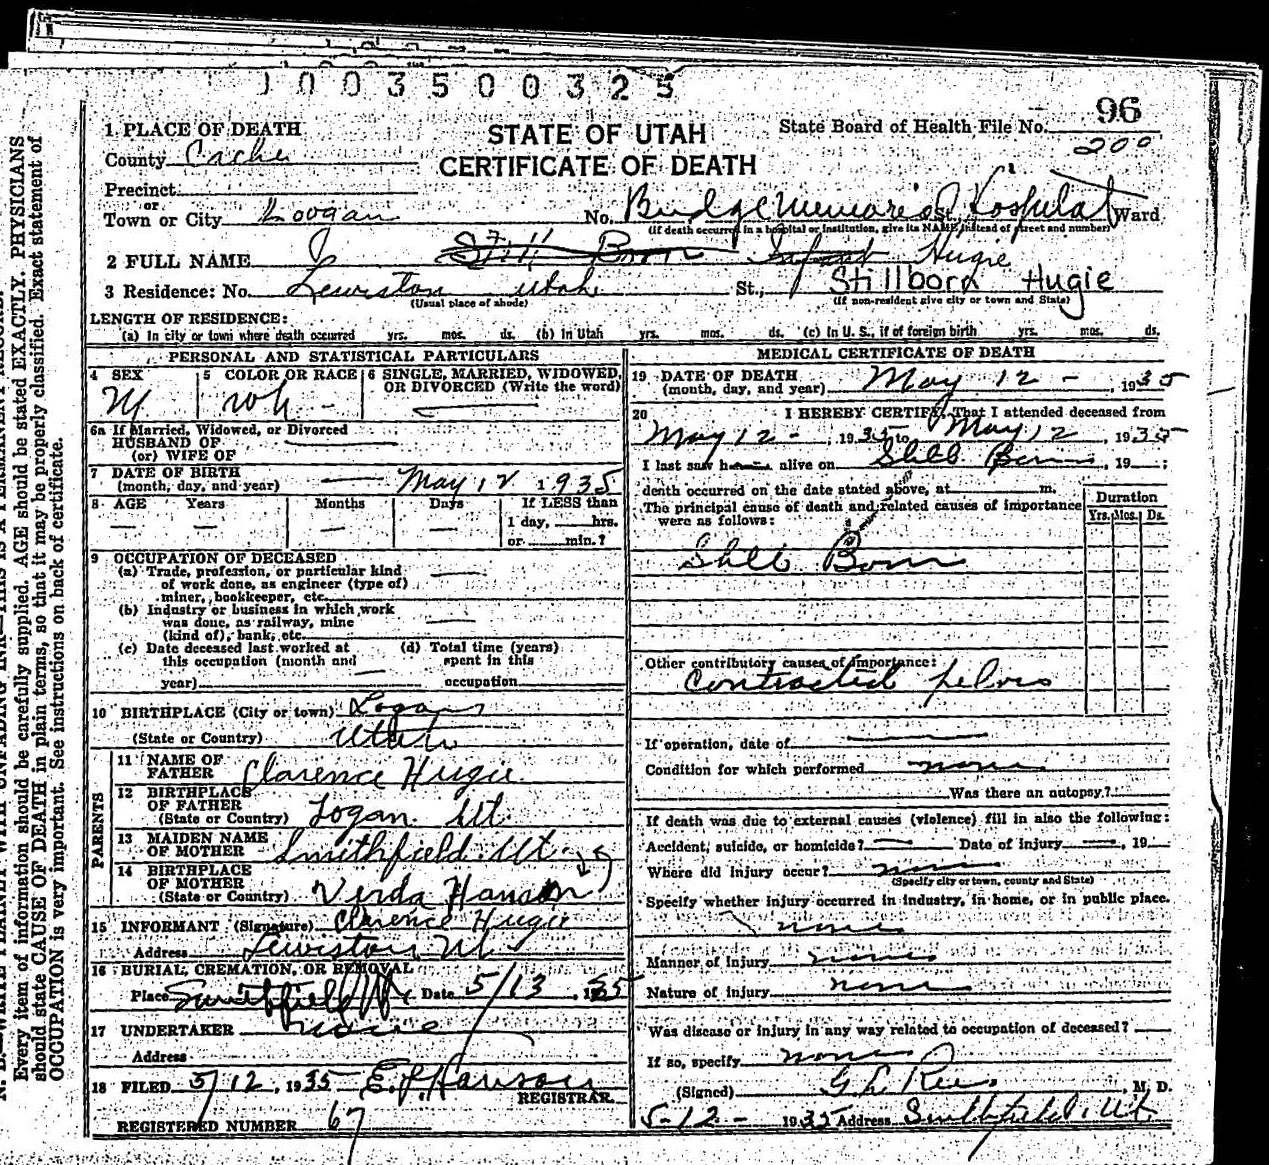 1003500325
96
STATE OF UTAH
CERTIFICATE OF DEATH
State Board of Health File No.
200
1 PLACE OF DEATH
County Cache
Precinct
or
Town or City Loogan No. Budge Memorial Hospital St., Ward
(If death occurred in a hospital or institution, give its NAME instead of street and number)
2 FULL NAME Still Born Infant Hugie
3 Residence: No. Lewiston Utah St., Stillborn Hugie
(Usual place of abode) (If non-resident give city or town and State)
LENGTH OF RESIDENCE:
(a) In city or town where death occurred yrs. mos. ds. (b) In Utah yrs. mos. ds. (c) In U. S., if of foreign birth yrs. mos. ds.
PERSONAL AND STATISTICAL PARTICULARS
4 SEX 5 COLOR OR RACE 6 SINGLE, MARRIED, WIDOWED, OR DIVORCED (Write the word)
M Wh -
6a If Married, Widowed, or Divorced
HUSBAND OF
(or) WIFE OF
7 DATE OF BIRTH
(month, day, and year) May 12 1935
8 AGE Years Months Days If LESS than
1 day, hrs.
or min.?
9 OCCUPATION OF DECEASED
(a) Trade, profession, or particular kind
of work done, as engineer (type of)
miner, bookkeeper, etc.
(b) Industry or business in which work
was done, as railway, mine
(kind of), bank, etc.
(c) Date deceased last worked at
this occupation (month and
year)
(d) Total time (years)
spent in this
occupation
10 BIRTHPLACE (City or town) Logan
(State or Country) Utah
PARENTS
11 NAME OF
FATHER Clarence Hugie
12 BIRTHPLACE
OF FATHER
(State or Country) Logan. Ut.
13 MAIDEN NAME
OF MOTHER Smithfield. Ut.
14 BIRTHPLACE
OF MOTHER
(State or Country) Verda Hanson
15 INFORMANT (Signature) Clarence Hugie
Address Lewiston, Ut
16 BURIAL, CREMATION, OR REMOVAL
Place Smithfield Ut Date 5/13, 1935
17 UNDERTAKER none
Address
18 FILED 5/12, 1935 E. J. Hanson
REGISTRAR.
REGISTERED NUMBER 67
MEDICAL CERTIFICATE OF DEATH
19 DATE OF DEATH
(month, day, and year) May 12 -, 1935
20 I HEREBY CERTIFY, That I attended deceased from
May 12 -, 1935 to May 12, 1935
I last saw h alive on Still Born, 19 ;
death occurred on the date stated above, at m.
The principal cause of death and related causes of importance
were as follows:
Duration
Yrs. Mos. Ds.
Still Born
Other contributory causes of importance:
Contracted pelvis
If operation, date of
Condition for which performed none
Was there an autopsy?
If death was due to external causes (violence) fill in also the following:
Accident, suicide, or homicide? Date of injury, 19
Where did injury occur? none
(Specify city or town, county and State)
Specify whether injury occurred in industry, in home, or in public place.
none
Manner of injury none
Nature of injury none
Was disease or injury in any way related to occupation of deceased?
If so, specify none
(Signed) G L Rees, M. D.
5-12-1935 Address Smithfield, Ut
Every item of information should be carefully supplied. AGE should be stated EXACTLY. PHYSICIANS
should state CAUSE OF DEATH in plain terms, so that it may be properly classified. Exact statement of
OCCUPATION is very important. See instructions on back of certificate.